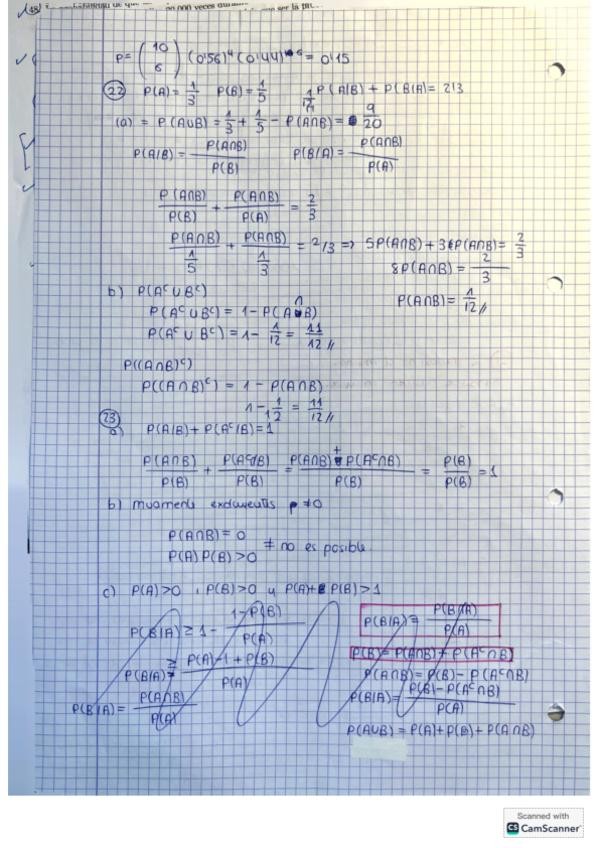 48
P = (10 6) (0'56)⁴ (0'44)⁶ = 0'15
22 P(A) = 1/3 P(B) = 1/5 P(A/B) + P(B/A) = 2/3
(a) = P(A∪B) = 1/3 + 1/5 - P(A∩B) = 9/20
P(A/B) = P(A∩B)/P(B) P(B/A) = P(A∩B)/P(A)
P(A∩B)/P(B) + P(A∩B)/P(A) = 2/3
P(A∩B)/(1/5) + P(A∩B)/(1/3) = 2/3 => 5P(A∩B) + 3P(A∩B) = 2/3
8P(A∩B) = 2/3
P(A∩B) = 1/12 //
b) P(Aᶜ∪Bᶜ)
P(Aᶜ∪Bᶜ) = 1 - P(A∩B)
P(Aᶜ∪Bᶜ) = 1 - 1/12 = 11/12 //
P((A∩B)ᶜ)
P((A∩B)ᶜ) = 1 - P(A∩B)
1 - 1/12 = 11/12 //
23
a) P(A/B) + P(Aᶜ/B) = 1
P(A∩B)/P(B) + P(Aᶜ∩B)/P(B) = P(A∩B) + P(Aᶜ∩B)/P(B) = P(B)/P(B) = 1
b) p ≠ 0
P(A∩B) = 0
P(A) P(B) > 0 ≠ no es posible.
c) P(A) > 0 , P(B) > 0 y P(A) + P(B) > 1
P(B/A) ≥ 1 - 1-P(B)/P(A)
P(B/A) ≥ P(A)-1+P(B)/P(A)
P(B/A) = P(A∩B)/P(A)
P(B/A) = P(B∩A)/P(A)
P(B) = P(A∩B) + P(Aᶜ∩B)
P(A∩B) = P(B) - P(Aᶜ∩B)
P(B/A) = P(B) - P(Aᶜ∩B)/P(A)
P(A∪B) = P(A) + P(B) + P(A∩B)
Scanned with
CS CamScanner